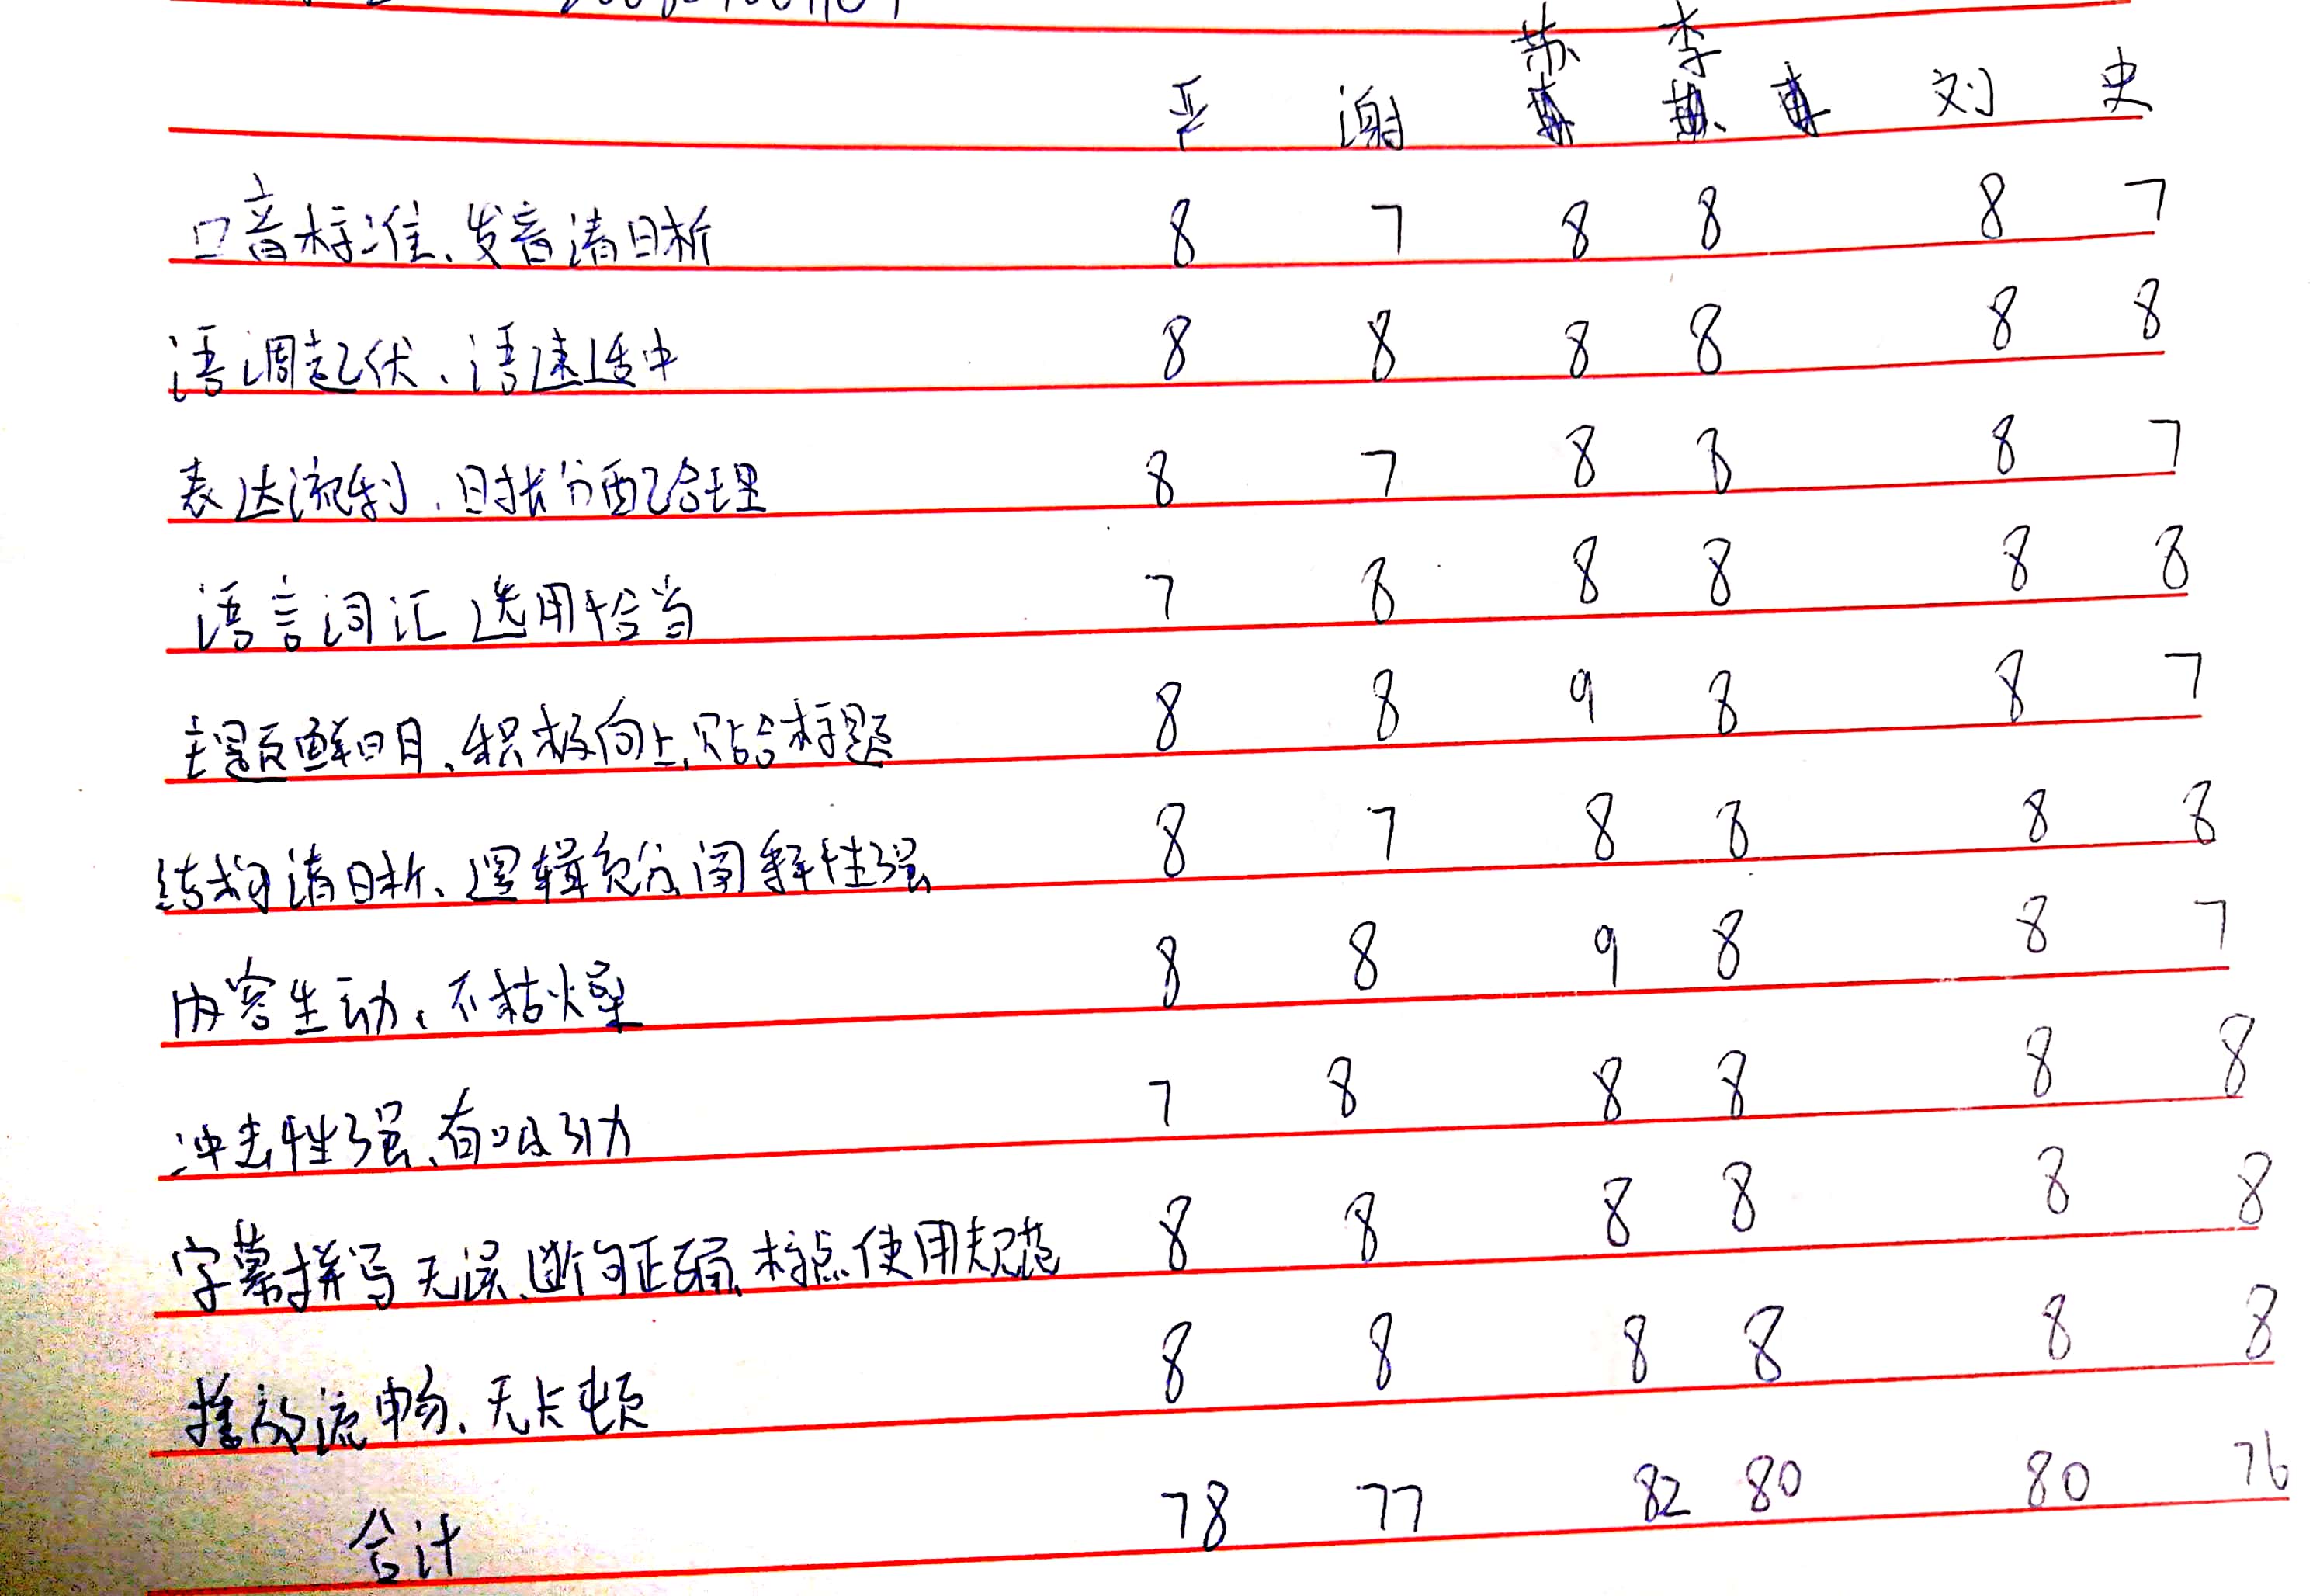 严 谢 苏 李 刘 史
口音标准、发音清晰 8 7 8 8 8 7
语调起伏、语速适中 8 8 8 8 8 8
表达流利、时长分配合理 8 7 8 8 8 7
语言词汇选用恰当 7 8 8 8 8 8
主题鲜明、积极向上、贴合标题 8 8 9 8 8 7
结构清晰、逻辑充分、阐释性强 8 7 8 8 8 8
内容生动、不枯燥 8 8 9 8 8 7
冲击性强、有吸引力 7 8 8 8 8 8
字幕拼写无误、断句正确、标点使用规范 8 8 8 8 8 8
播放流畅、无卡顿 8 8 8 8 8 8
合计 78 77 82 80 80 76